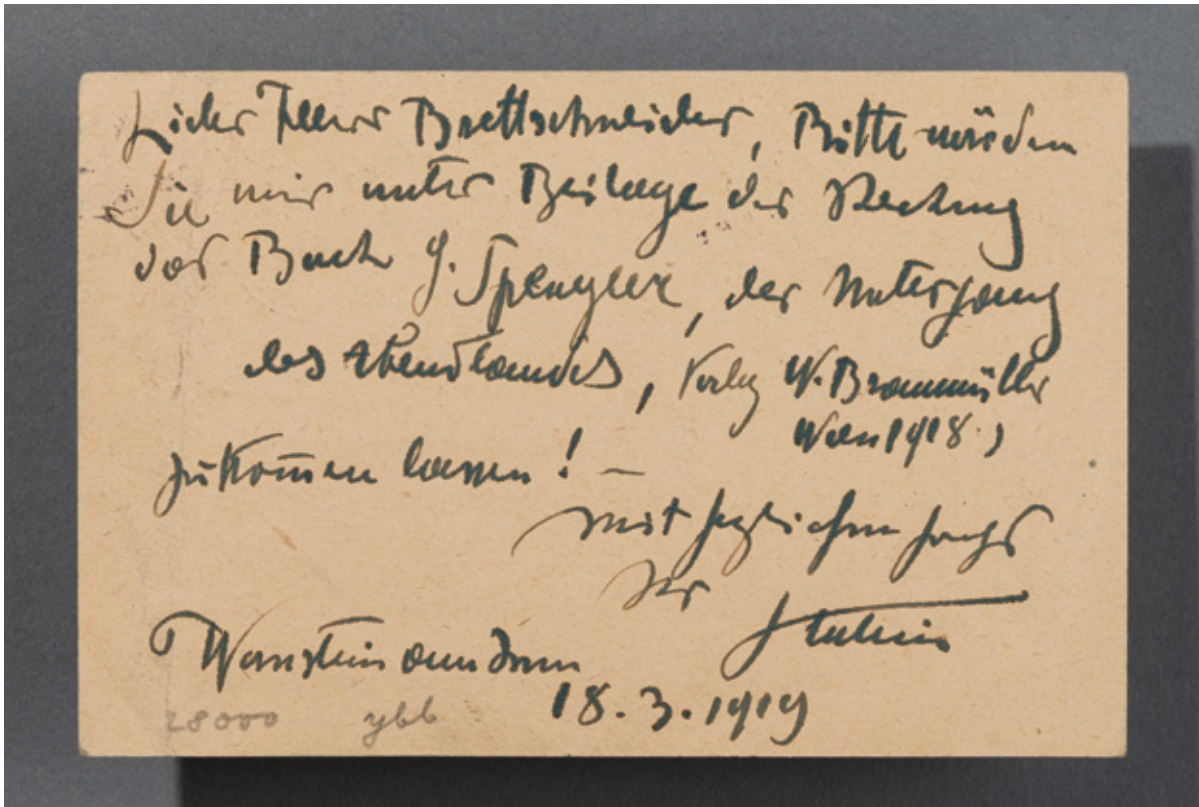 Lieber Herr Brettschneider, Bitte würden
Sie mir unter Beilage der Rechnung
das Buch O. Spengler, der Untergang
des Abendlandes, Verlag W. Braumüller
Wien 1918)
zukommen lassen! –
mit herzlichem
Ihr
Wernstein am Inn
18.3.1919
28000 ybb